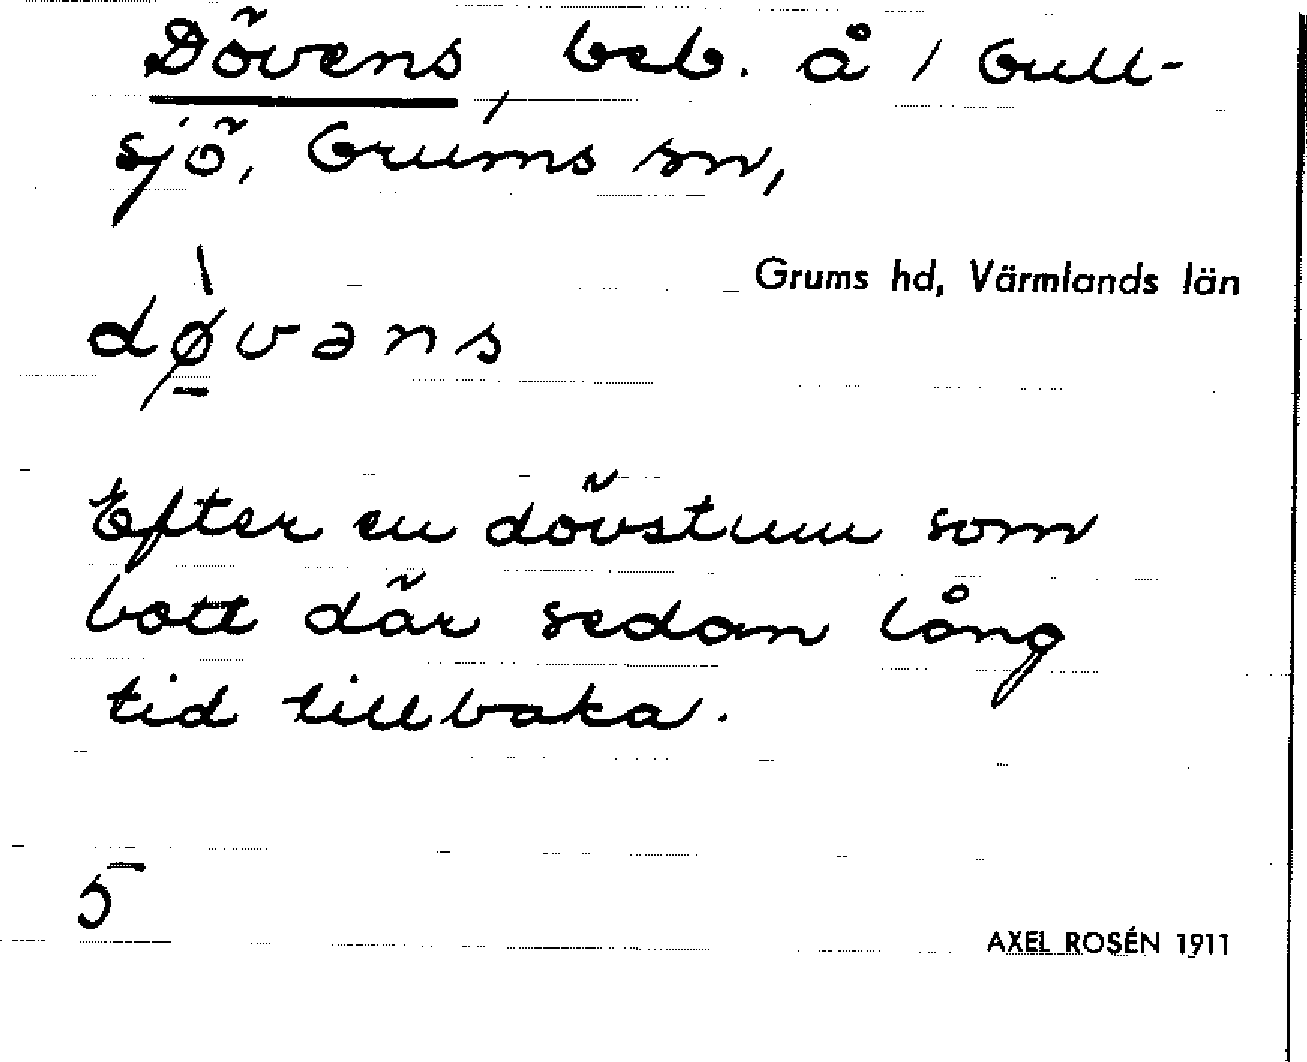 Dövens, beb. å 1 Gull-
sjö, Grums sn,
Grums hd, Värmlands län
dø̠̀vəns
Efter en dövstum som
bott där sedan lång
tid tillbaka.
5
AXEL ROSÉN 1911